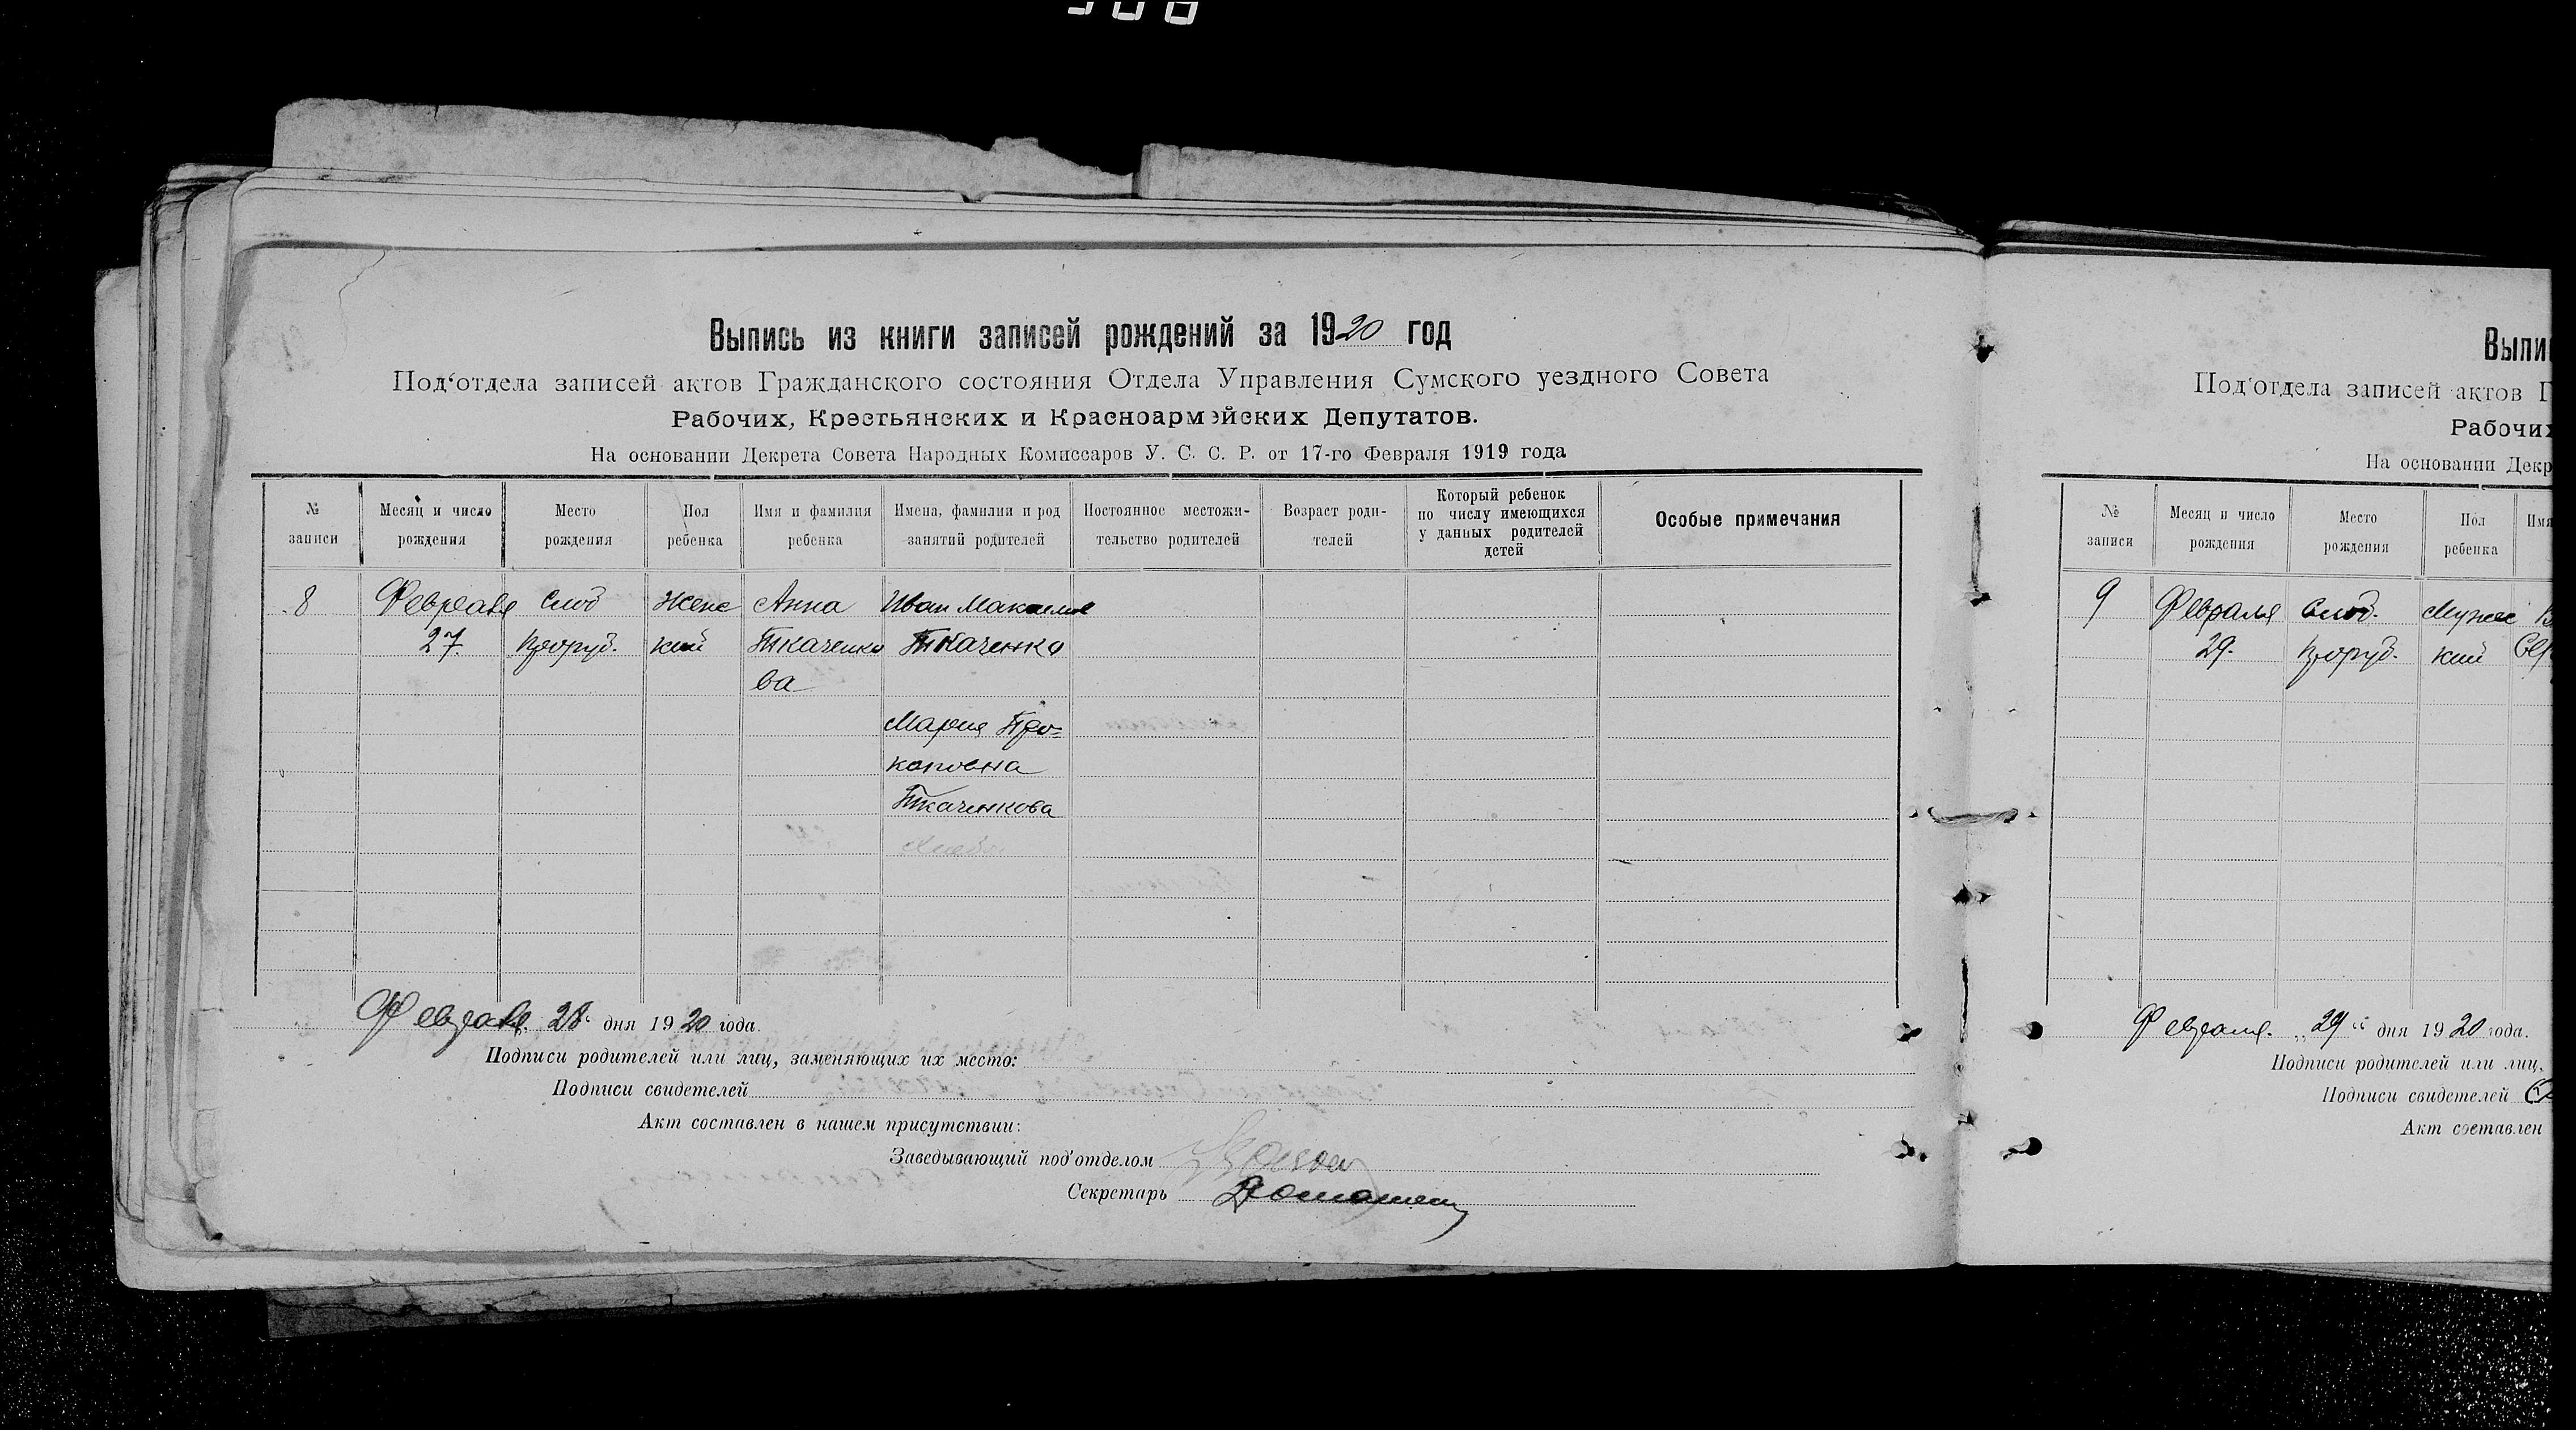 Выпись из книги записей рождений за 1920 год
Под‘отдела записей актов Гражданского состояния Отдела Управления Сумского уездного Совета
Рабочих, Крестьянских и Красноармэйских Депутатов.
На основании Декрета Совета Народных Комиссаров У. С. С. Р. от 17-го Февраля 1919 года
№ записи
Месяц и число рождения
Место рождения
Пол ребенка
Имя и фамилия ребенка
Имена, фамилии и род занятий родителей
Постоянное местожи-тельство родителей
Возраст роди-телей
Который ребенок по числу имеющихся у данных родителей детей
Особые примечания
8 Февраля слоб Женс Анна Иван
27. ​кий Ткаченко Ткаченко
ва
Мария Про=
коповна
Ткаченкова
Февраля 28 дня 1920 года.
Подписи родителей или лиц, заменяющих их место:
Подписи свидетелей
Акт составлен в нашем присутствии:
Заведывающий под‘отделом
Секретарь
Выпи
Под‘отдела записей актов Г
Рабочих
На основании Декр
№ записи
Месяц и число рождения
Место рождения
Пол ребенка
Имя
9 Февраля слоб. Мужс
29. кий
Февраля. „29“ дня 1920 года.
Подписи родителей или лиц,
Подписи свидетелей
Акт составлен